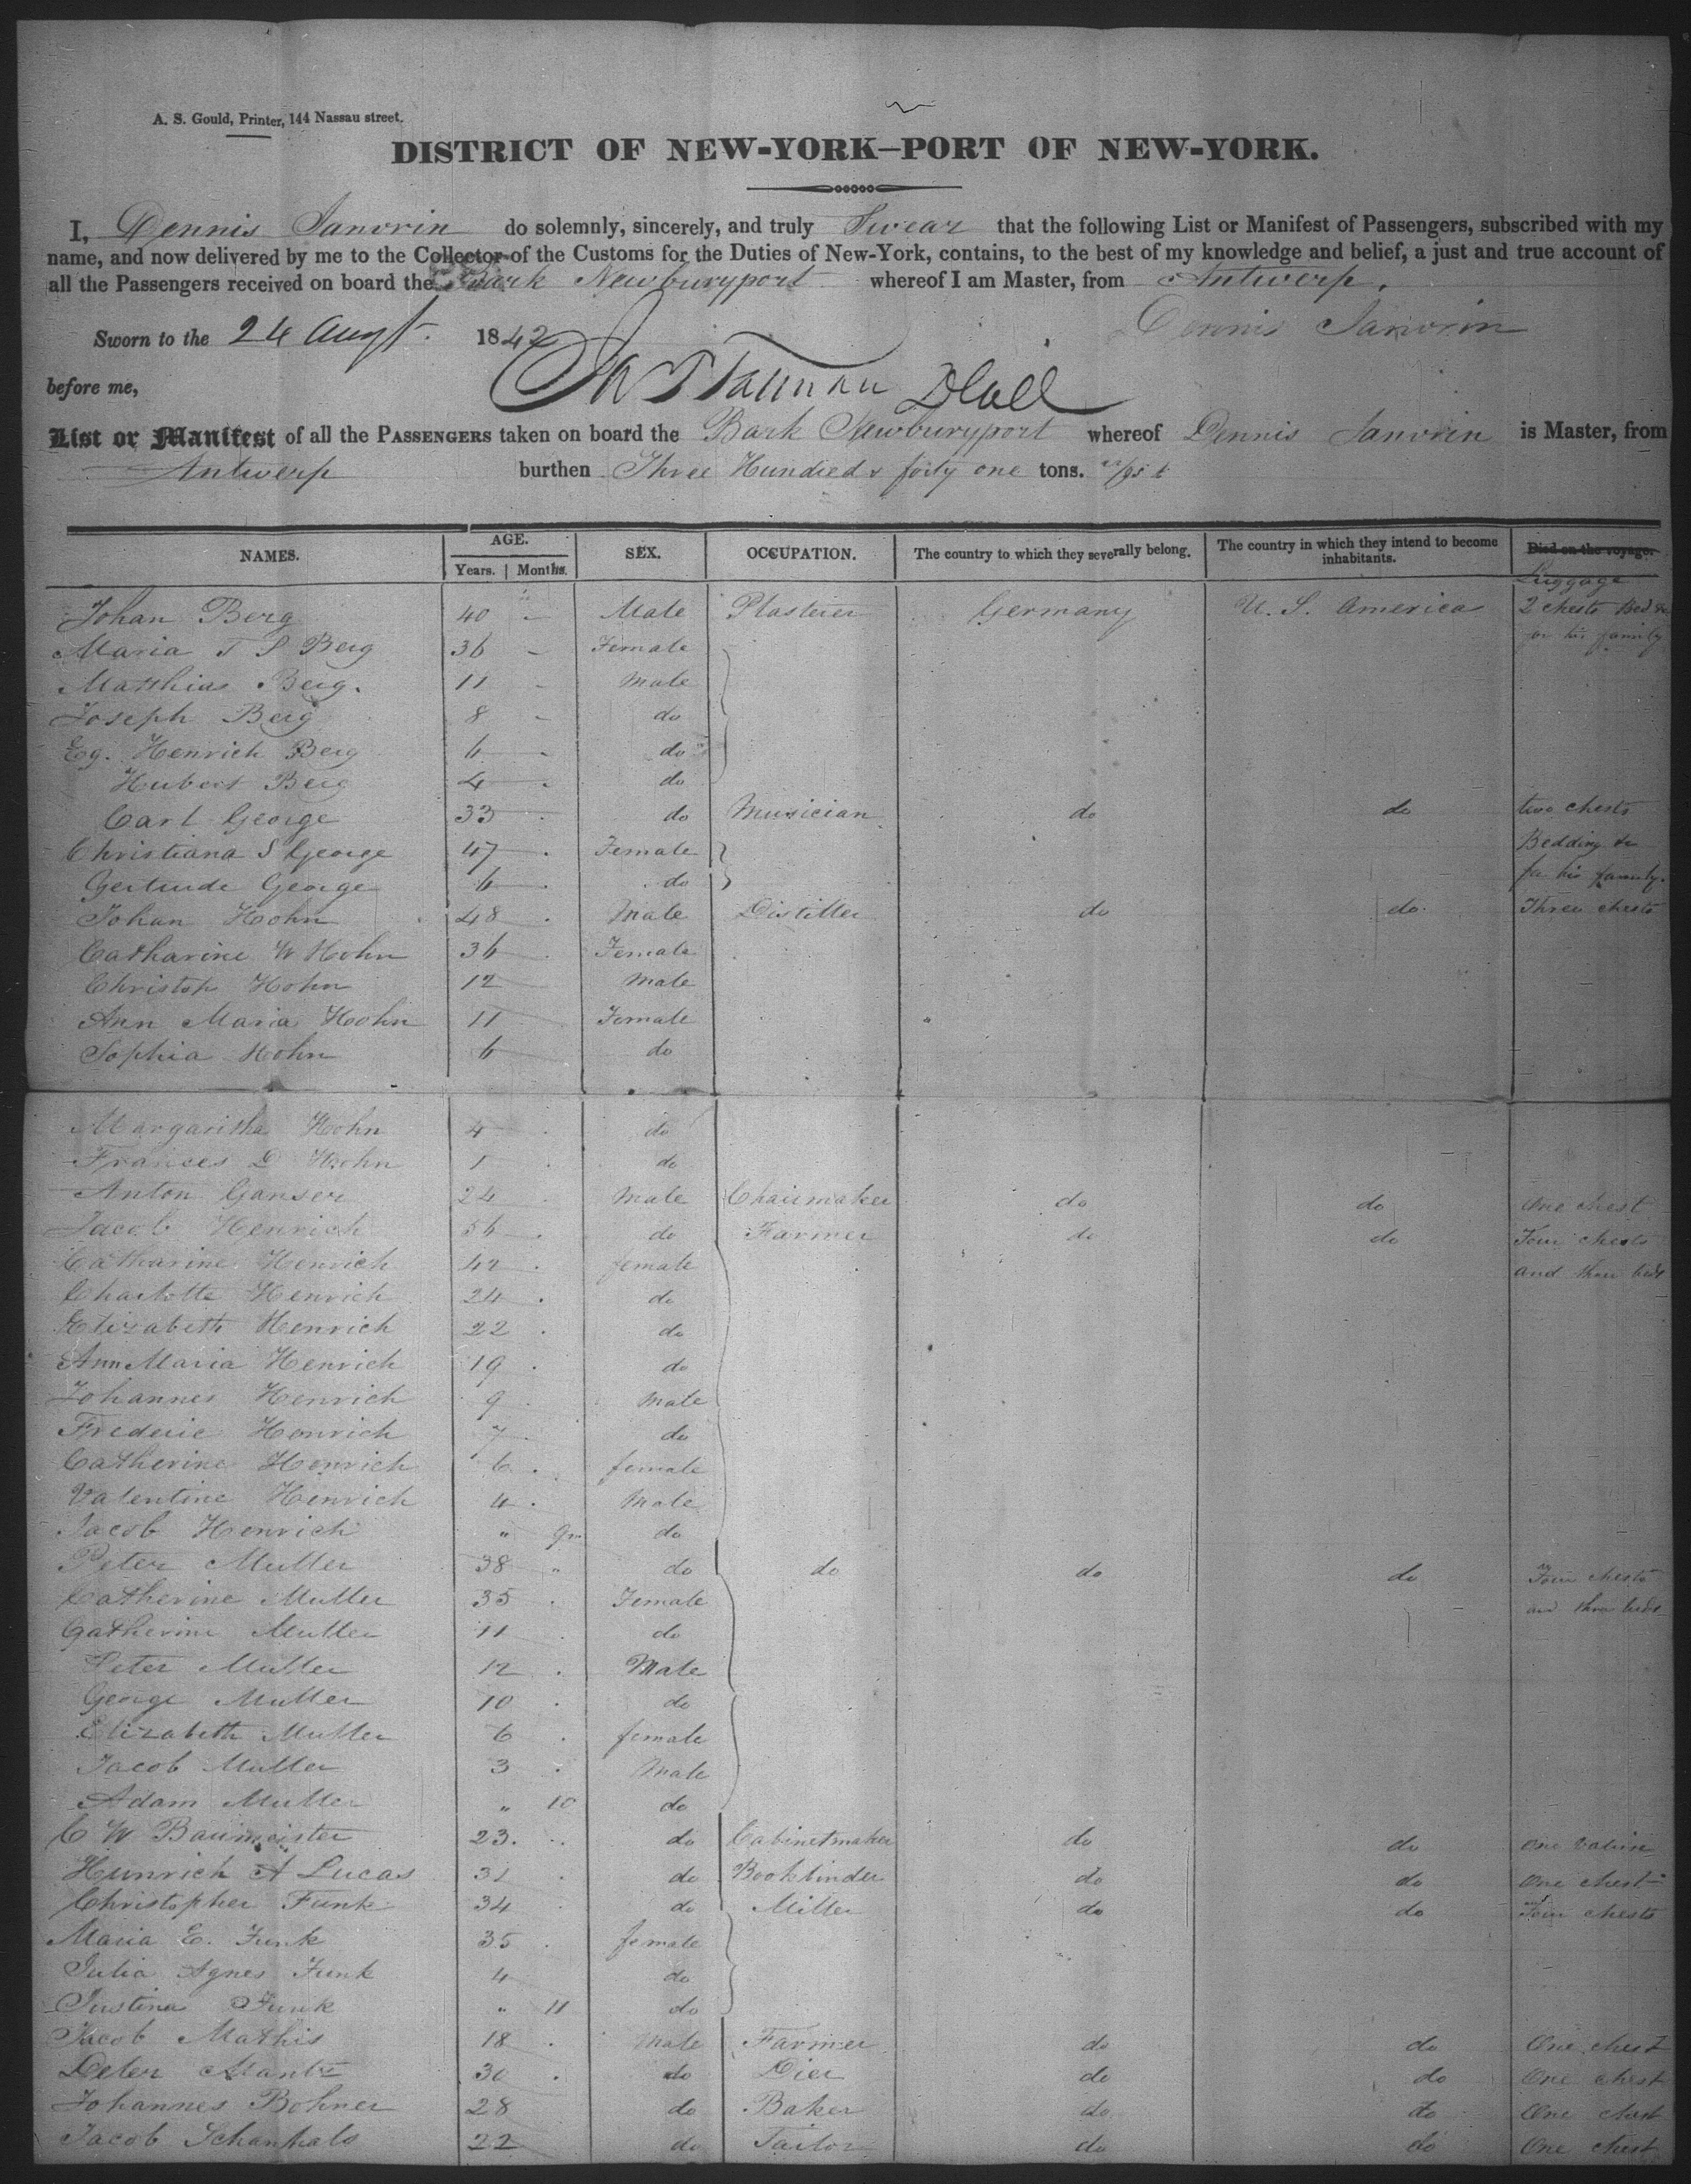 A. S. Gould, Printer, 144 Nassau street.
DISTRICT OF NEW-YORK—PORT OF NEW-YORK.
I, Dennis Janvrin do solemnly, sincerely, and truly Swear that the following List or Manifest of Passengers, subscribed with my
name, and now delivered by me to the Collector of the Customs for the Duties of New-York, contains, to the best of my knowledge and belief, a just and true account of
all the Passengers received on board the Bark Newburyport whereof I am Master, from Antwerp.
Sworn to the 24 Augt. 1842 Dennis Janvrin
before me,
List or Manifest of all the PASSENGERS taken on board the Bark Newburyport whereof Dennis Janvrin is Master, from
Antwerp burthen Three Hundred & forty one tons.
NAMES. AGE. Years. Months. SEX. OCCUPATION. The country to which they severally belong. The country in which they intend to become inhabitants. Died on the voyage.
Luggage
Johan Berg 40 - Male Plasterer Germany U. S. America 2 chests Bed &c
Maria T S Berg 36 - Female for his family
Matthias Berg. 11 - Male
Joseph Berg 8 - do
Eg. Henrich Berg 6 - do
Hubert Berg 4 - do
Carl George 33 do Musician do do two chests
Christiana S George 47 Female Bedding &c
Gertrude George 6 do for his family.
Johan Hohn 48 Male Distiller do do Three chests
Catharine W Hohn 36 Female
Christop Hohn 12 Male
Ann Maria Hohn 11 Female
Sophia Hohn 6 do
Margaritha Hohn 4 do
Frances D Hohn 1 do
Anton Ganser 24 Male Chairmaker do do One chest
Jacob Henrich 56 do Farmer do do Four chests
Catharine Henrich 42 female and three beds
Charlotte Henrich 24 do
Elizabeth Henrich 22 do
Ann Maria Henrich 19 do
Johannes Henrich 9 Male
Frederic Henrich 7 do
Catherine Henrich 6 female
Valentine Henrich 4 Male
Jacob Henrich " 9m do
Peter Muller 38 " do do do do Four chests
Catherine Muller 35 Female and three beds
Catherine Muller 11 do
Peter Muller 12 Male
George Muller 10 do
Elizabeth Muller 6 female
Jacob Muller 3 Male
Adam Muller " 10 do
C W Baumeister 23. do Cabinetmaker do do One
Hunrich A Lucas 31 do Bookbinder do do One chest
Christopher Funk 34 do Miller do do Four chests
Maria E. Funk 35 female
Julia Agnes Funk 4 do
Justina Funk " 11 do
Jacob Mathis 18 Male Farmer do do One chest
Peter Mantz 30 do Dier do do One chest
Johannes Bohner 28 do Baker do do One chest
Jacob 22 do Tailor do do One chest